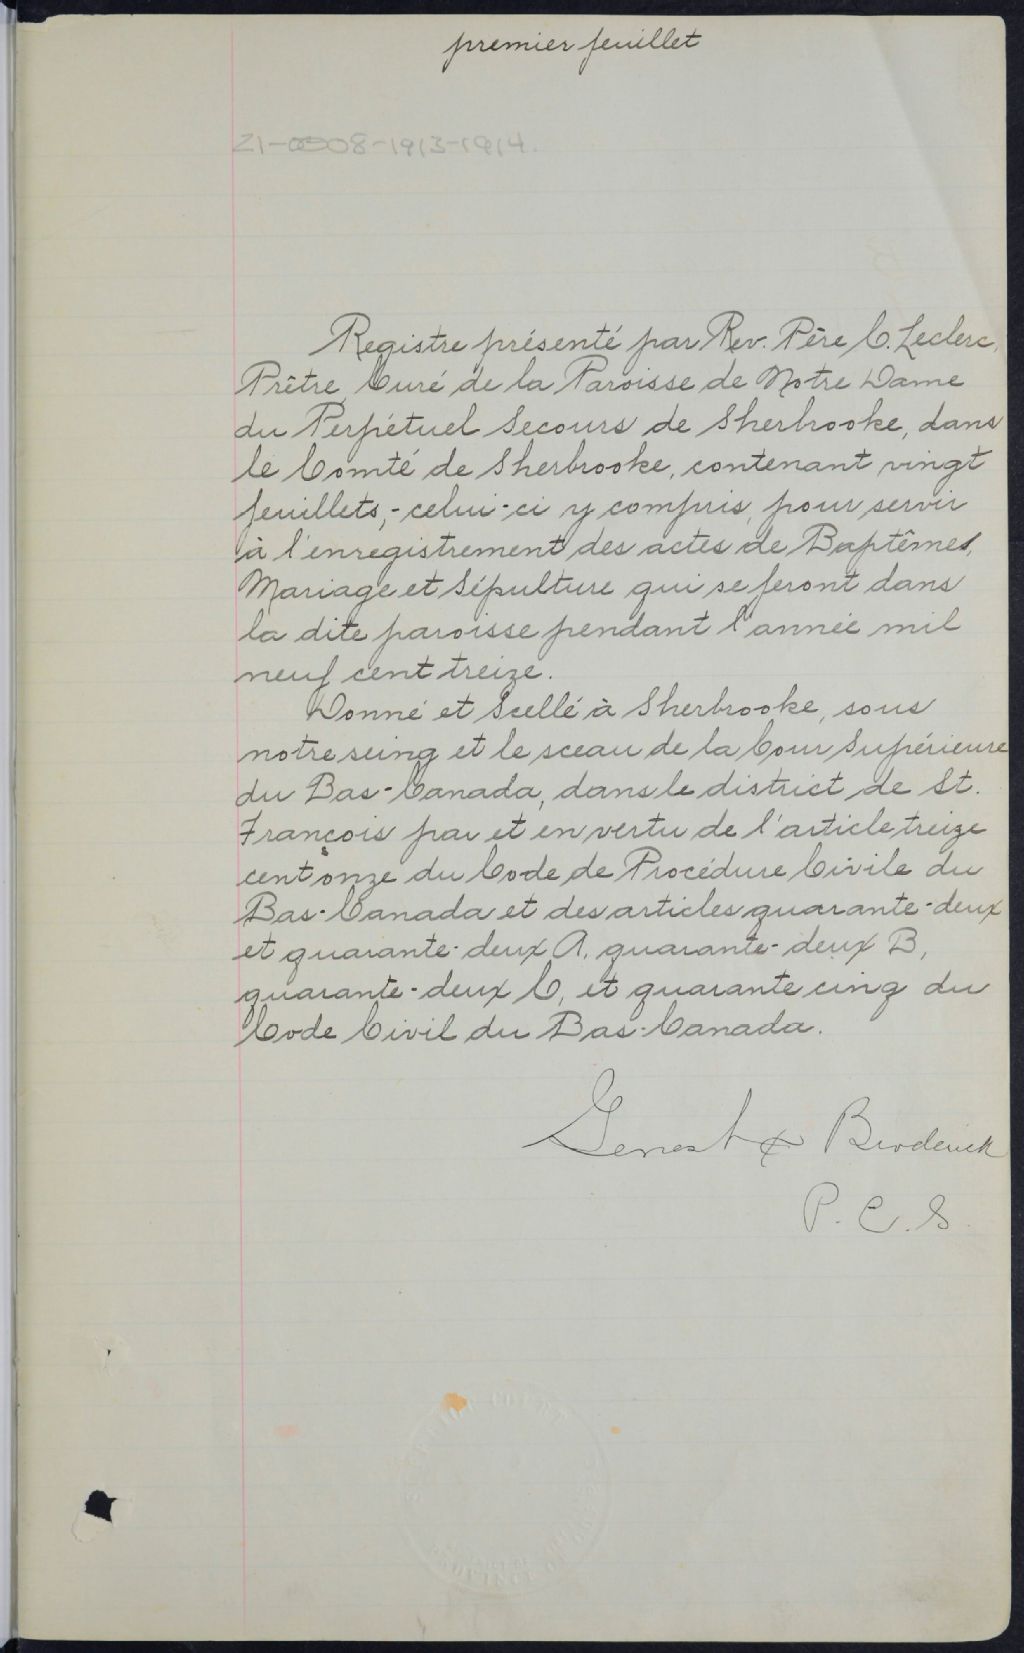 premier feuillet
Z1-0008-1913-1914.
Registre présenté par Rev. Père C. Leclerc,
Prêtre, Curé de la Paroisse de Notre Dame
du Perpétuel Secours de Sherbrooke, dans
le Comté de Sherbrooke, contenant vingt
feuillets,-celui-ci y compris, pour servir
à l'enregistrement des actes de Baptêmes,
Mariage et Sépulture qui se feront dans
la dite paroisse pendant l'année mil
neuf cent treize.
Donné et Scellé à Sherbrooke, sous
notre seing et le sceau de la Cour Supérieure
du Bas-Canada, dans le district de St.
François par et en vertu de l'article treize
cent onze du Code de Procédure Civile du
Bas-Canada et des articles quarante-deux
et quarante-deux A, quarante-deux B,
quarante-deux C, et quarante cinq du
Code Civil du Bas-Canada.
Genest & Broderick
P.C.S.